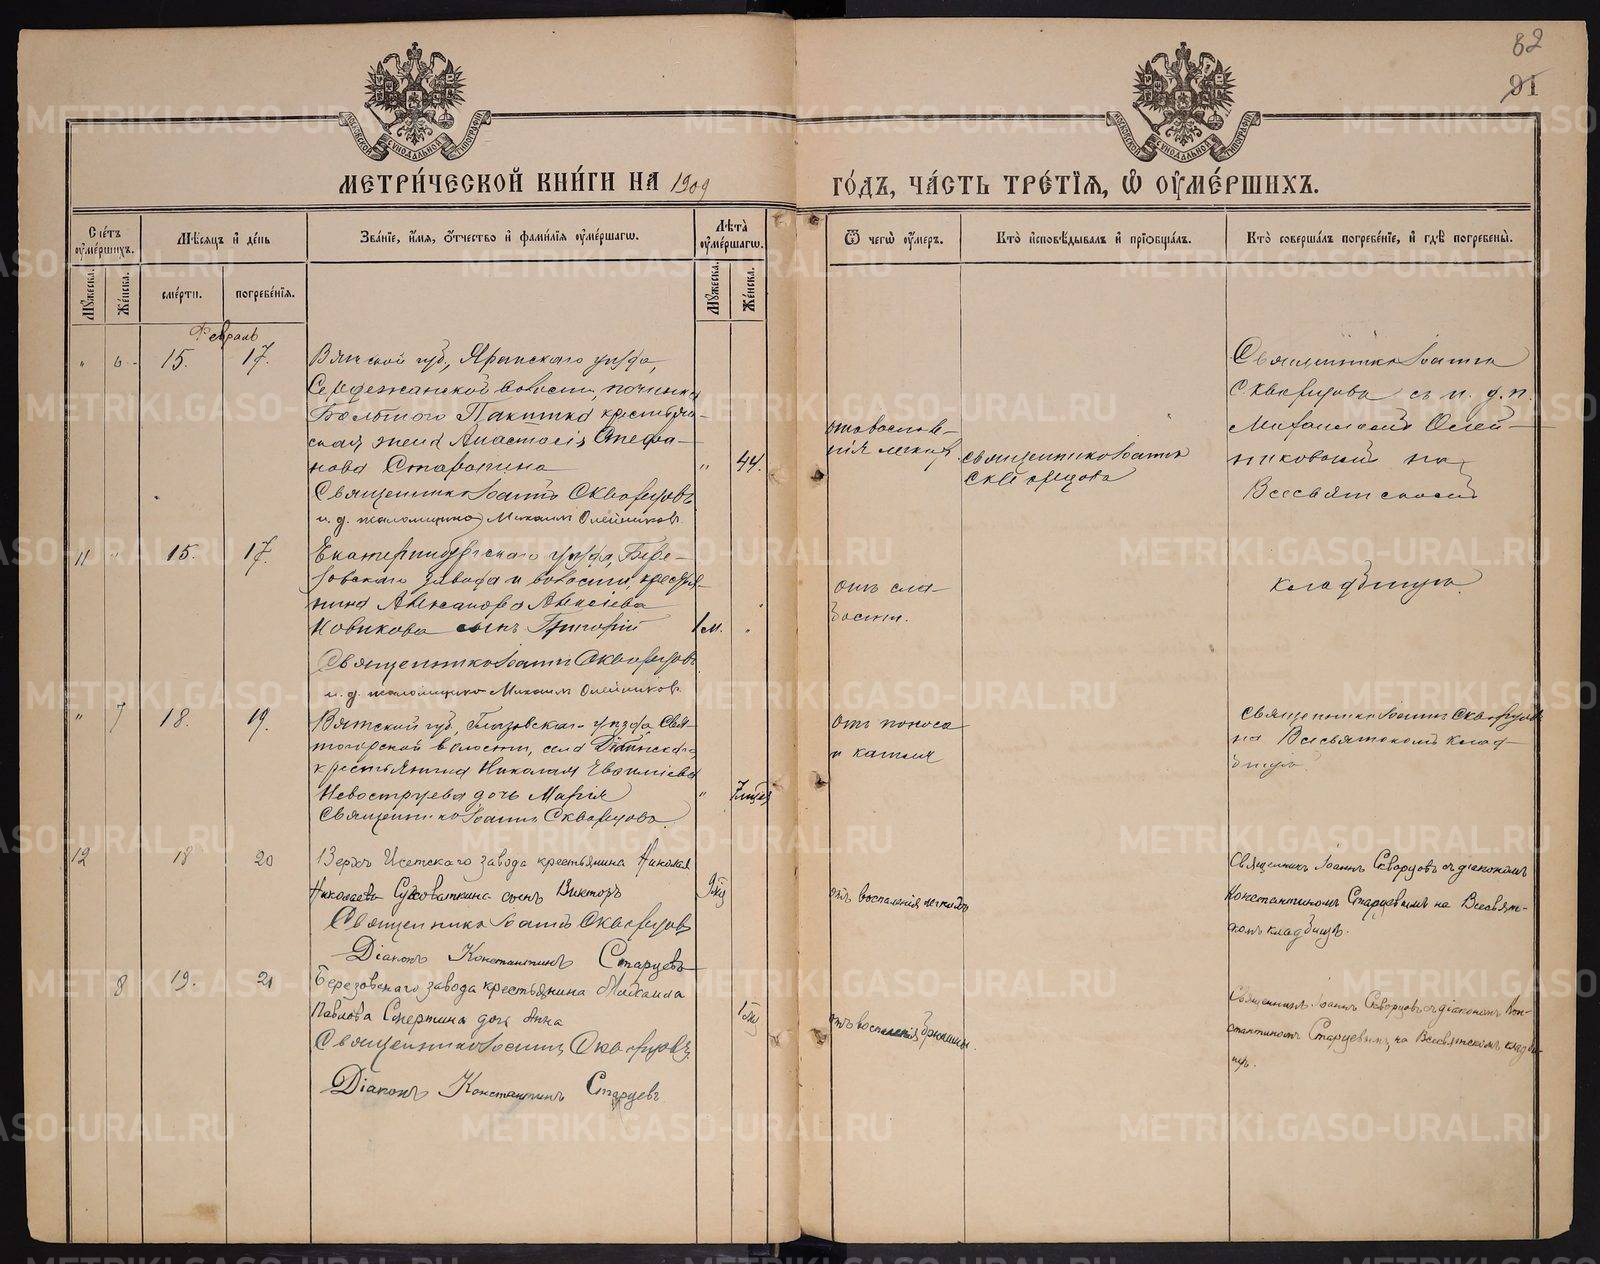 82
91
МОСКОВСКОЙ СѴНОДАЛЬНОЙ ТИПОГРАФІИ
МОСКОВСКОЙ СѴНОДАЛЬНОЙ ТИПОГРАФІИ
МЕТРИ́ЧЕСКОЙ КНИ́ГИ НА 1909
ГО́ДЪ, ЧА́СТЬ ТРЕ́ТІѦ, Ѡ҆ ОУ҆МЕ́РШИХЪ.
Сче́тъ оу҆ме́ршихъ.
Мѣ́сѧцъ и҆ де́нь
Зва́нїе, и҆́мѧ, ѻ҆́тчество и҆ фами́лїѧ оу҆ме́ршагѡ.
Лѣ́та̀ оу҆ме́ршагѡ.
Ѿ чегѡ̀ оу҆́меръ.
Кто̀ и҆сповѣ́дывалъ и҆ прїѡбща́лъ.
Кто̀ соверша́лъ погребе́нїе, и҆ гдѣ̀ погребены̀.
Мꙋ́жеска.
Же́нска.
сме́рти.
погребе́нїѧ.
Мꙋ́жеска.
Же́нска.
Февраль
" 6 15. 17. Вятской губ, Яранскаго уѣзда,
волости, починка
крестьян-
ская жена Анастасія Стефа-
нова " 44.
Священникъ Іоаннъ Скворцовъ
и. д. псаломщика Михаилъ Олейниковъ
отъ воспале-
нія легких.
Священникъ Іоаннъ
Скворцовъ
Священникъ Іоаннъ
Скворцовъ съ и. д. п.
Михаиломъ Олей-
никовымъ на
Всесвятскомъ
кладбищѣ.
11 " 15. 17. Екатеринбургскаго уѣзда, Бере-
зовскаго завода и волости, крестья-
нина Александра Алексѣева
Новикова сынъ Григорій 1 м. "
Священникъ Іоаннъ Скворцовъ
и. д. псаломщика Михаилъ Олейниковъ
отъ сла-
бости.
" 7 18. 19. Вятской губ, Глазовскаго уѣзда, Свя-
тогорской волости, села
крестьянина Николая
Невоструева дочь Марія "
Священникъ Іоаннъ Скворцовъ
отъ поноса
и кашля
Священникъ Іоаннъ Скворцовъ
на Всесвятскомъ клад-
бищѣ.
12 18 20 Верхъ Исетскаго завода крестьянина Николая
Николаева Суховаткина сынъ Викторъ
Священникъ Іоаннъ Скворцовъ
Діаконъ Константинъ Старцевъ
отъ воспаленія легкихъ
Священникъ Іоаннъ Скворцовъ съ діакономъ
Константиномъ Старцевымъ на Всесвят-
скомъ кладбищѣ.
8 19. 21 Березовскаго завода крестьянина Михаила
Павлова Смертина дочь Анна
Священникъ Іоаннъ Скворцовъ
Діаконъ Константинъ Старцевъ
отъ воспаленія брюшины.
Священникъ Іоаннъ Скворцовъ съ діакономъ Кон-
стантиномъ Старцевымъ, на Всесвятскомъ кладби-
щѣ.
METRIKI.GASO-URAL.RU